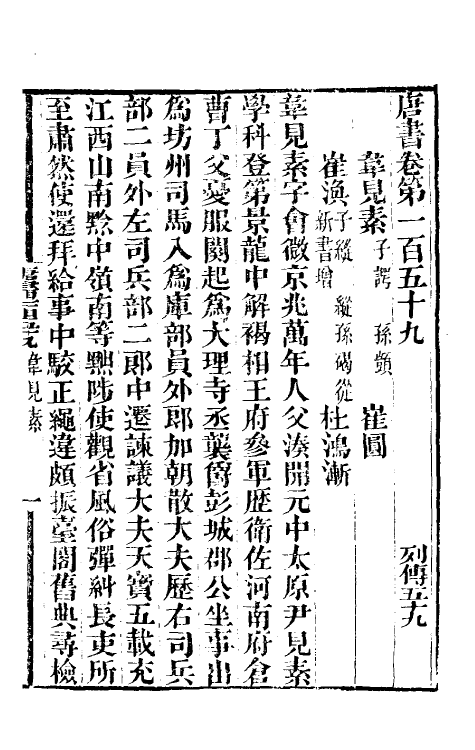 唐書卷第一百五十九　列傳五九
韋見素子諤　孫顗　崔圓
崔渙子縱　縱孫碣從新書增　杜鴻漸
韋見素字會微京兆萬年人父湊開元中太原尹見素
學科登第景龍中解褐相王府參軍歷衛佐河南府倉
曹丁父憂服闋起爲大理寺丞襲爵彭城郡公坐事出
爲坊州司馬入爲庫部員外郎加朝散大夫歷右司兵
部二員外左司兵部二郎中遷諫議大夫天寶五載充
江西山南黔中嶺南等黜陟使觀省風俗彈糾長吏所
至肅然使還拜給事中駮正繩違頗振臺閣舊典尋檢
韋見素
一